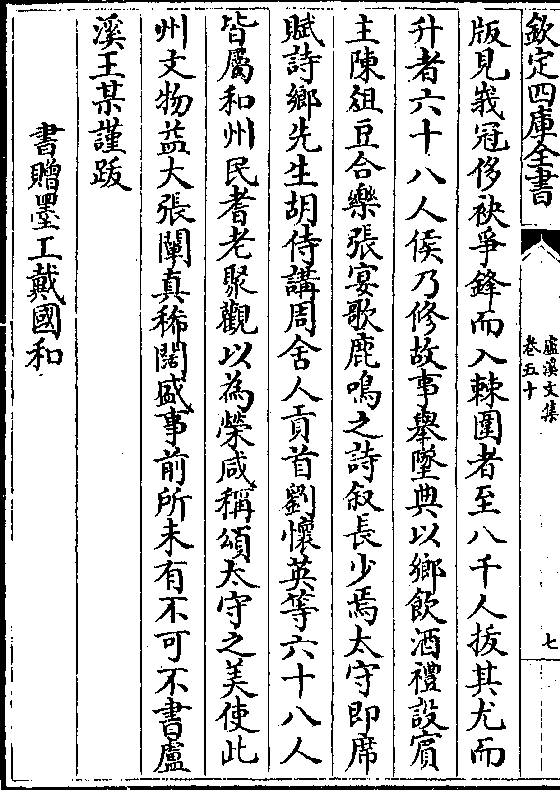 欽定四庫全書
盧溪文集
卷五十
七
版見峩冠侈袂爭鋒而入棘圍者至八千人拔其尤而
升者六十八人侯乃修故事舉墜典以鄉飲酒禮設賓
主陳俎豆合樂張宴歌鹿鳴之詩叙長少焉太守即席
賦詩鄉先生胡侍講周舍人貢首劉懷英等六十八人
皆屬和州民耆老聚觀以為榮咸稱頌太守之美使此
州文物益大張闡真稀闊盛事前所未有不可不書盧
溪王某謹跋
書贈墨工戴國和